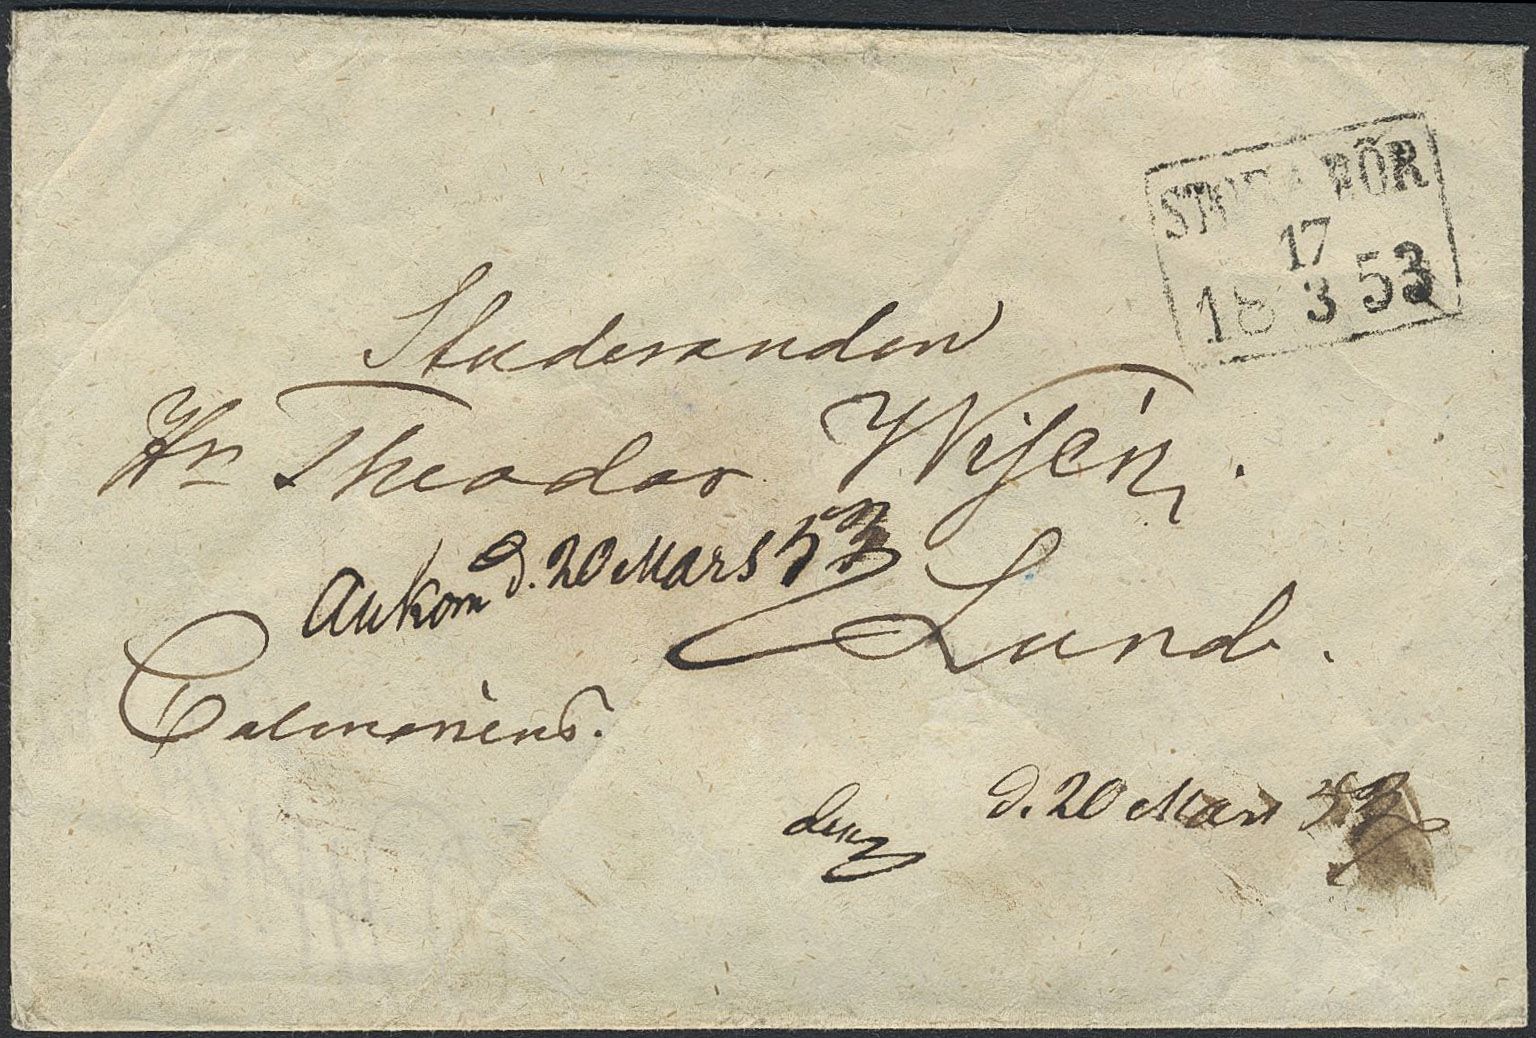 STORA RÖR
17
18 3 53
Studeranden
Hrr Theodor Wisén.
Ankom d. 20 Mars 53
Lund.
Calmariens.
d. 20 Mars 53